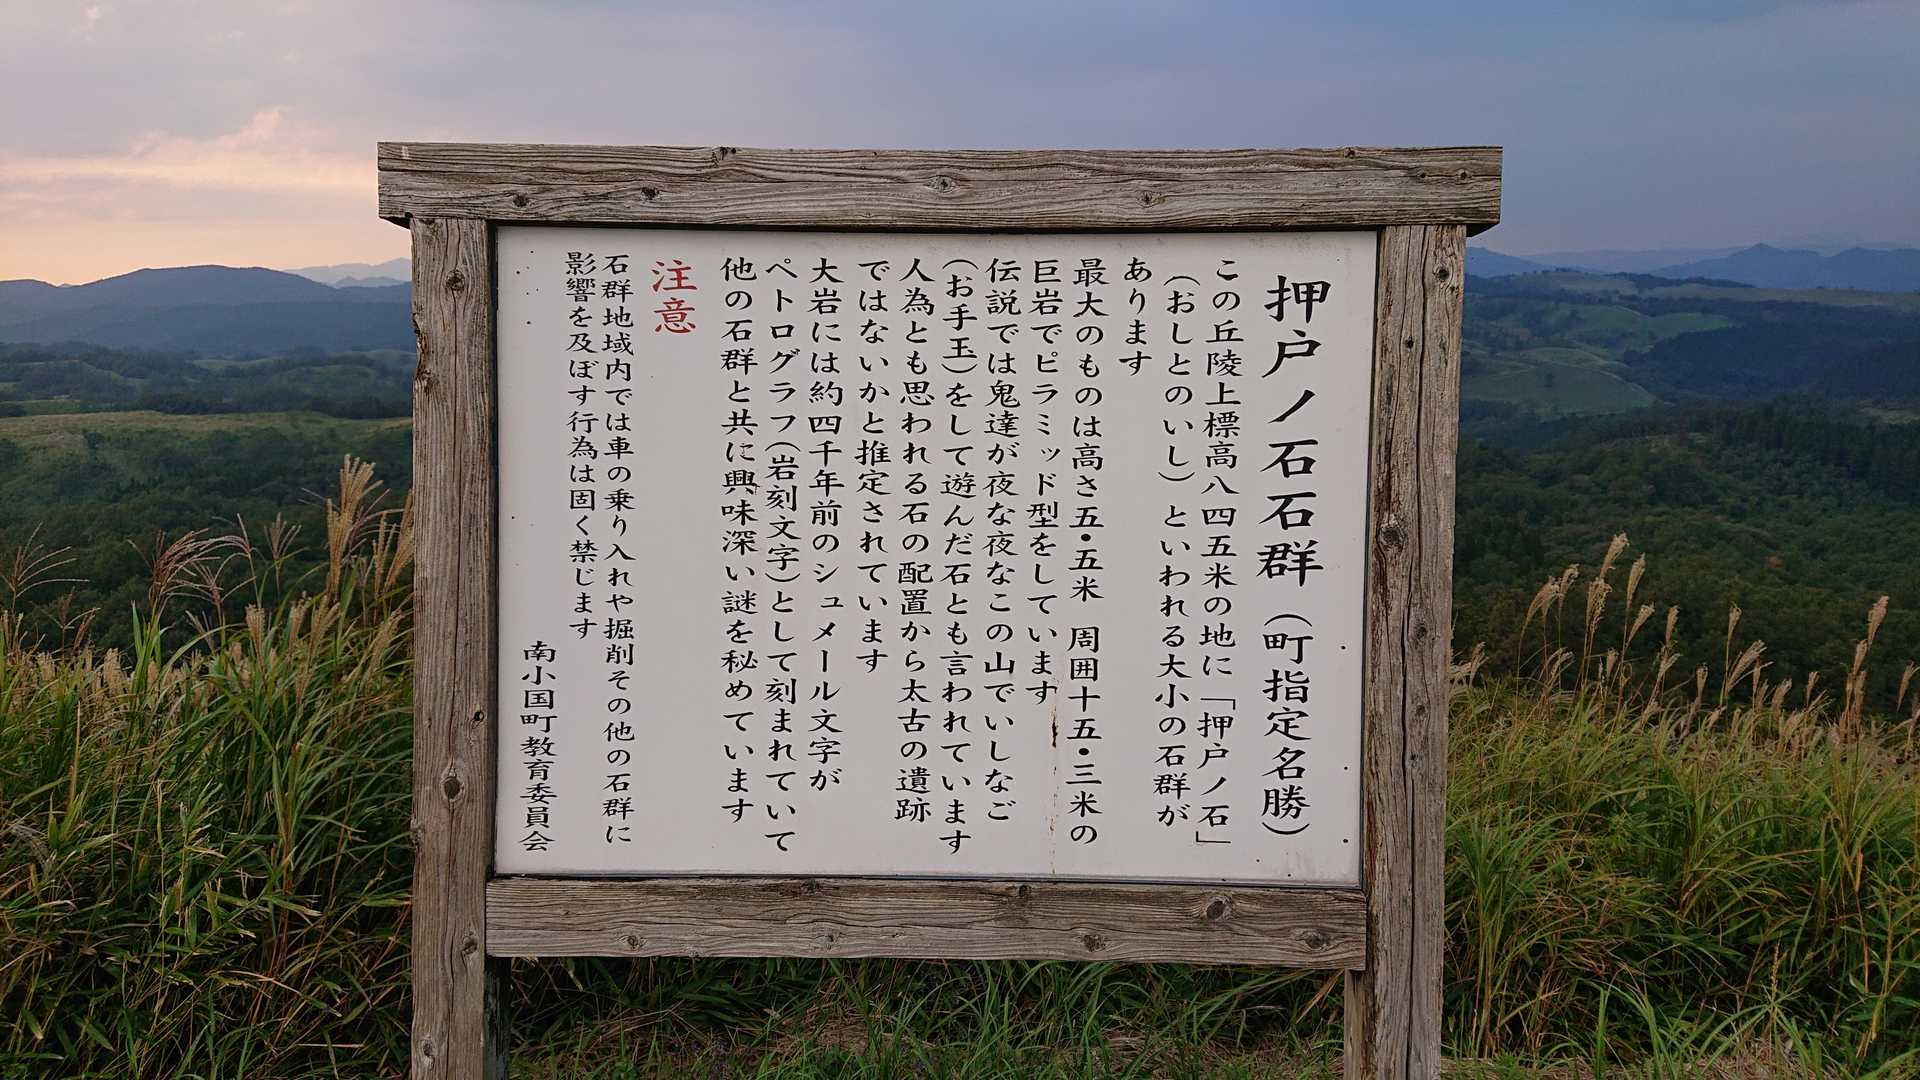 押戸ノ石石群（町指定名勝）
この丘陵上標高八四五米の地に「押戸ノ石」
（おしとのいし）といわれる大小の石群が
あります
最大のものは高さ五・五米 周囲十五・三米の
巨岩でピラミッド型をしています
伝説では鬼達が夜な夜なこの山でいしなご
（お手玉）をして遊んだ石とも言われています
人為とも思われる石の配置から太古の遺跡
ではないかと推定されています
大岩には約四千年前のシュメール文字が
ペトログラフ（岩刻文字）として刻まれていて
他の石群と共に興味深い謎を秘めています
注意
石群地域内では車の乗り入れや掘削その他の石群に
影響を及ぼす行為は固く禁じます
南小国町教育委員会